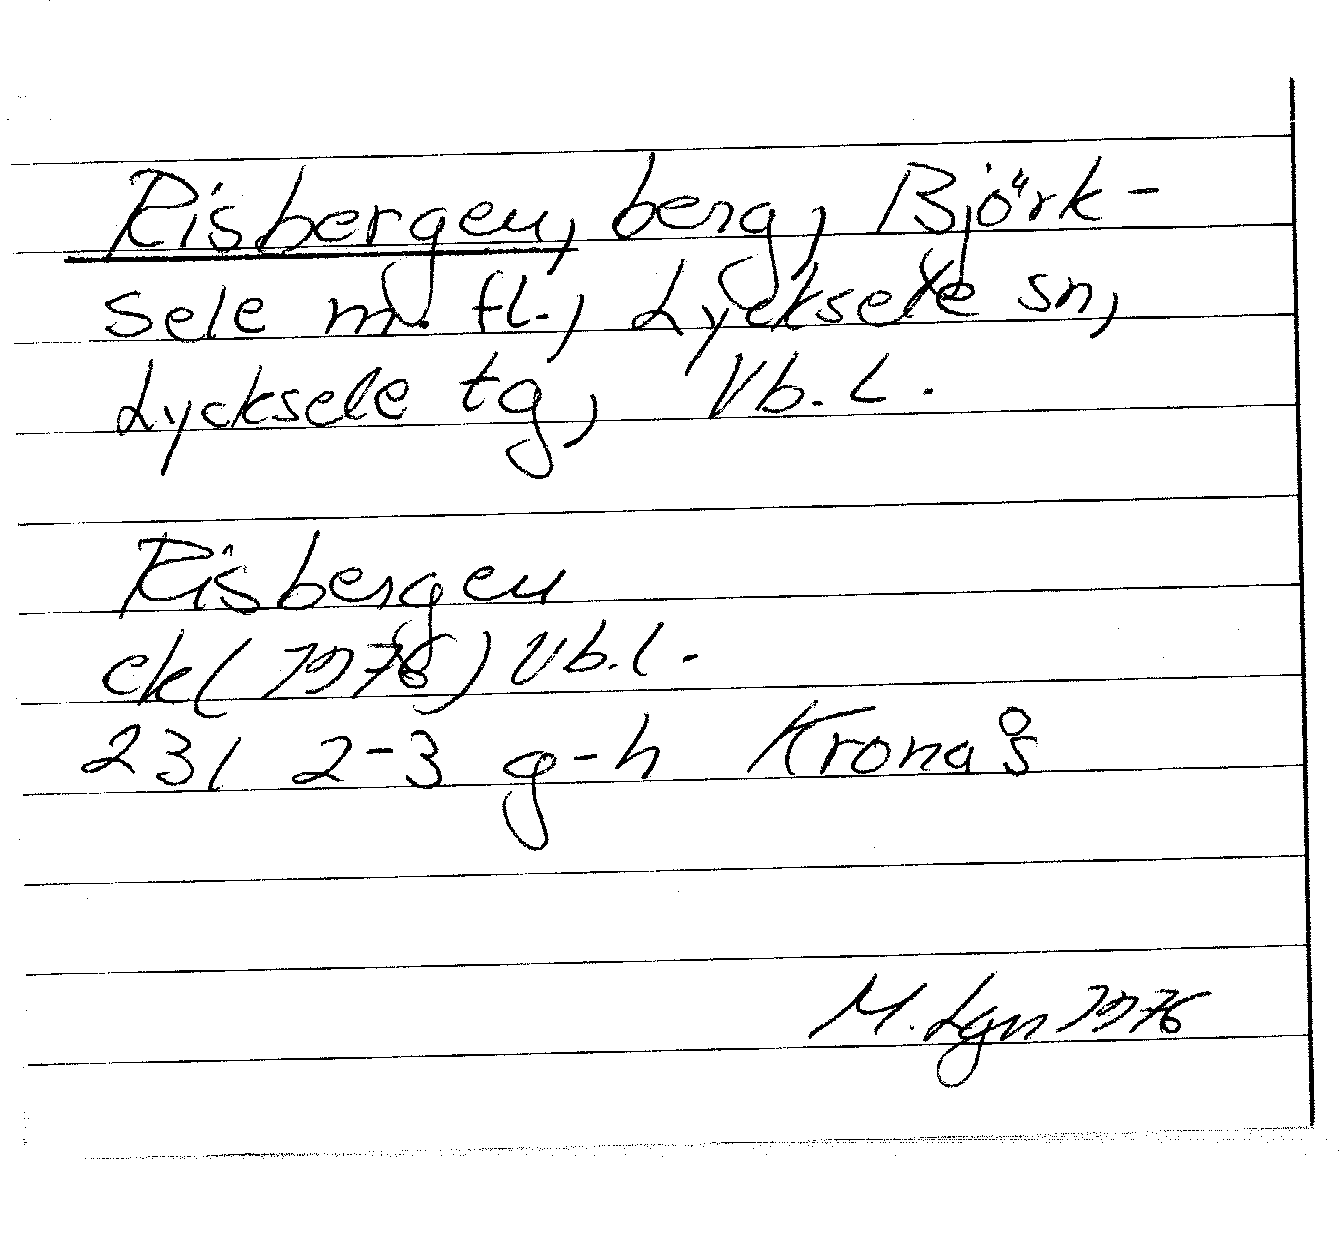 Risbergen, berg, Björk-
sele m. fl., Lycksele sn,
Lycksele tg, Vb. L.
Risbergen
ek (1976) Vb. l.
23I 2-3 g-h Kronås
M. Lgn 1976